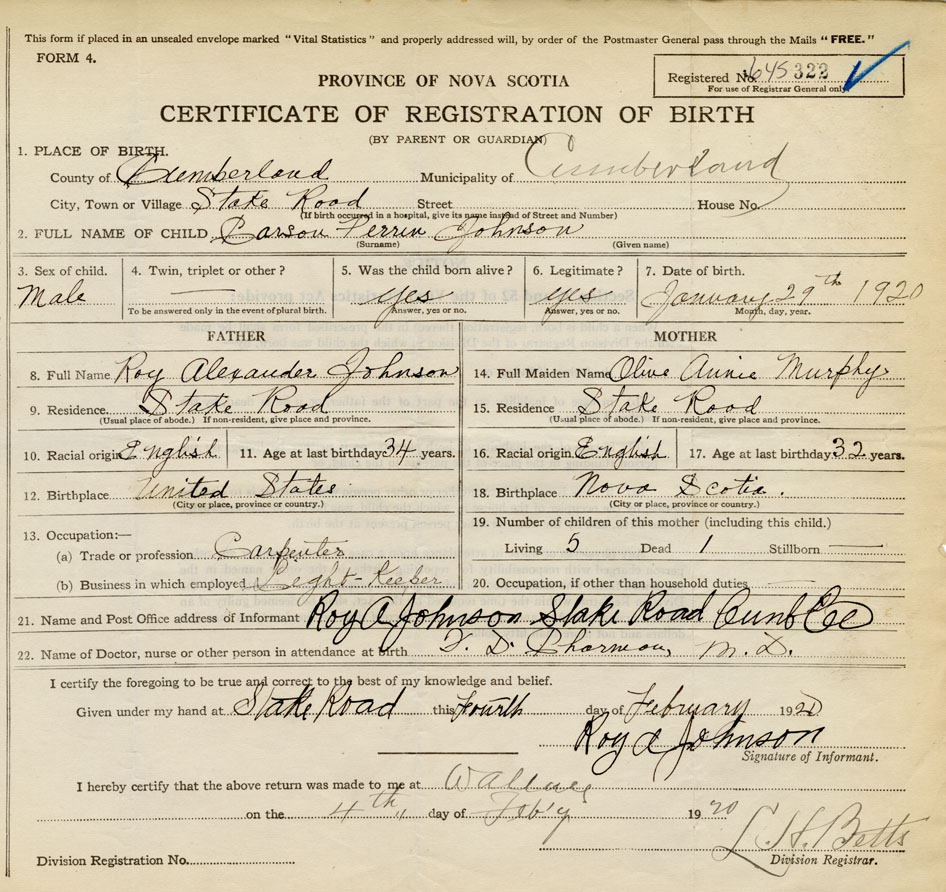 This form if placed in an unsealed envelope marked "Vital Statistics" and properly addressed will, by order of the Postmaster General pass through the Mails "FREE."
FORM 4.
PROVINCE OF NOVA SCOTIA
Registered No. 645 322
For use of Registrar General only
CERTIFICATE OF REGISTRATION OF BIRTH
(BY PARENT OR GUARDIAN)
1. PLACE OF BIRTH.
County of Cumberland Municipality of Cumberland
City, Town or Village Stake Road Street House No.
(If birth occured in a hospital, give its name instead of Street and Number)
2. FULL NAME OF CHILD Carson Perrin Johnson
(Surname) (Given name)
3. Sex of child. 4. Twin, triplet or other? 5. Was the child born alive? 6. Legitimate? 7. Date of birth.
Male — yes yes January 29th 1920
To be answered only in the event of plural birth. Answer, yes or no. Answer, yes or no. Month, day, year.
FATHER MOTHER
8. Full Name Roy Alexander Johnson 14. Full Maiden Name Olive Annie Murphy
9. Residence Stake Road 15. Residence Stake Road
(Usual place of abode.) If non-resident, give place and province. (Usual place of abode.) If non-resident, give place and province.
10. Racial origin English 11. Age at last birthday 34 years. 16. Racial origin English 17. Age at last birthday 32 years.
12. Birthplace United States 18. Birthplace Nova Scotia.
(City or place, province or country.) (City or place, province or country.)
19. Number of children of this mother (including this child.)
13. Occupation:—
(a) Trade or profession Carpenter Living 5 Dead 1 Stillborn —
(b) Business in which employed Light-Keeper 20. Occupation, if other than household duties
21. Name and Post Office address of Informant Roy A Johnson Stake Road Cumb Co
22. Name of Doctor, nurse or other person in attendance at birth M. D.
I certify the foregoing to be true and correct to the best of my knowledge and belief.
Given under my hand at Stake Road this Fourth day of February 1920
Roy A Johnson
Signature of Informant.
I hereby certify that the above return was made to me at Wallace
on the 4th day of Feb'y 1920
L. H. Betts
Division Registration No. Division Registrar.